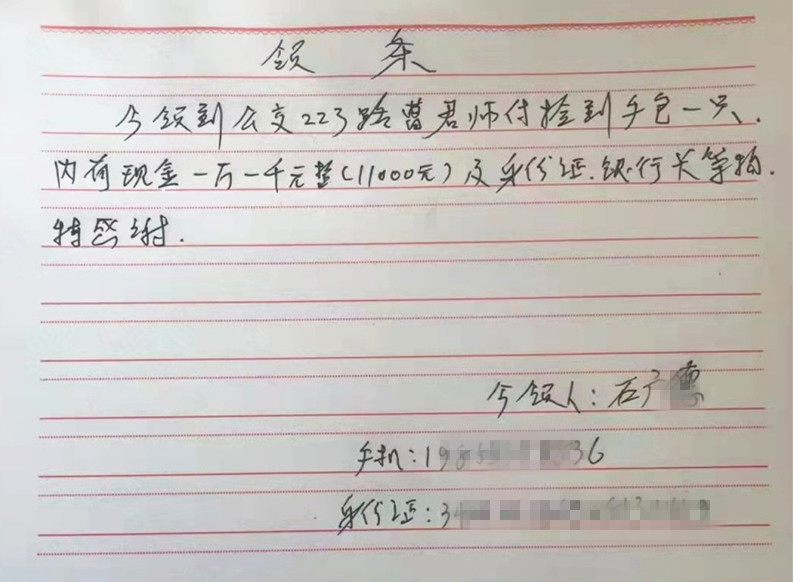 领 条
今领到公交223路曹君师付捡到手包一只、
内有现金一万一千元整(11000元)及身份证.银行关等物.
特感谢.
今领人:石广
手机:198 36
身份证:3